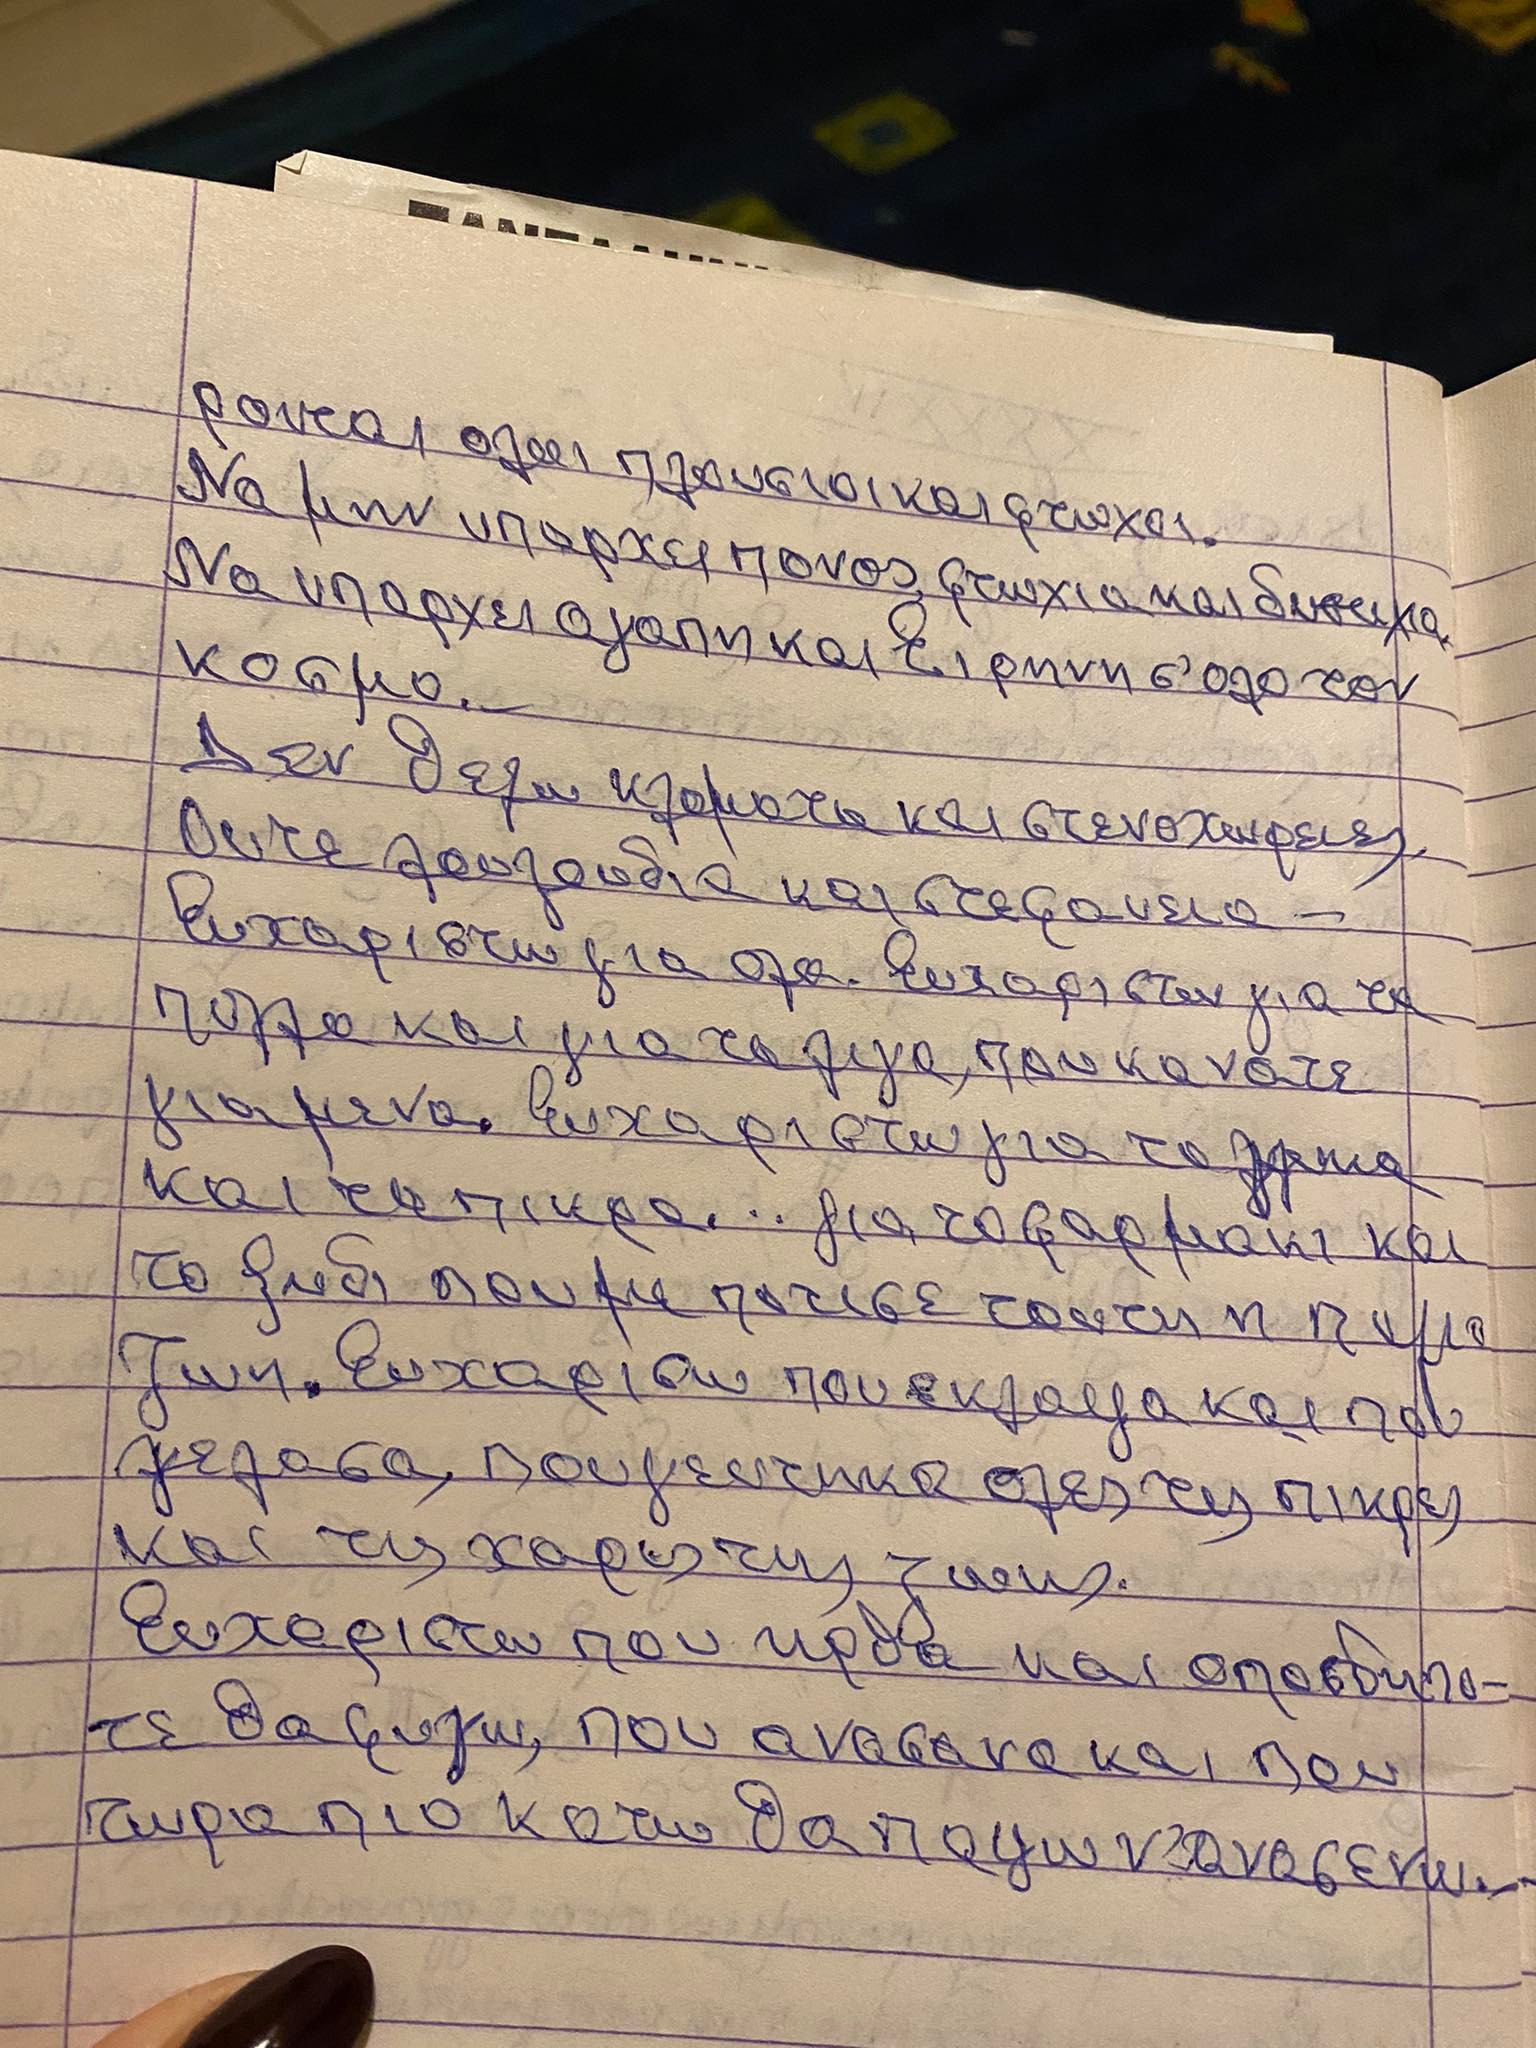 ρουνται ολοι πλουσιοι και φτωχοι.
Να μην υπαρχει πονος, φτωχια και δυστυχια.
Να υπαρχει αγαπη και Ειρηνη σ' ολο τον
κοσμο.
Δεν θελω κλαματα και στενοχωρειες
Ουτε λουλουδια και στεφανεια —
Ευχαριστω για ολα. Ευχαριστω για τα
πολλα και για τα λιγα, που κανατε
για μενα. Ευχαριστω για τα
και τα πικρα... για το φαρμακι και
το ξυδι που με ποτισε τουτη η
Ζωη. Ευχαριστω που εκλαψα και που
γελασα, που γευτηκα ολες τις πικρες
και τις χαρες της ζωης.
Ευχαριστω που ηρθα και οποσδηπο-
τε θα φυγω, που ανασανα και που
τωρα πιο κατω θα παψω ν' ανασενω. —